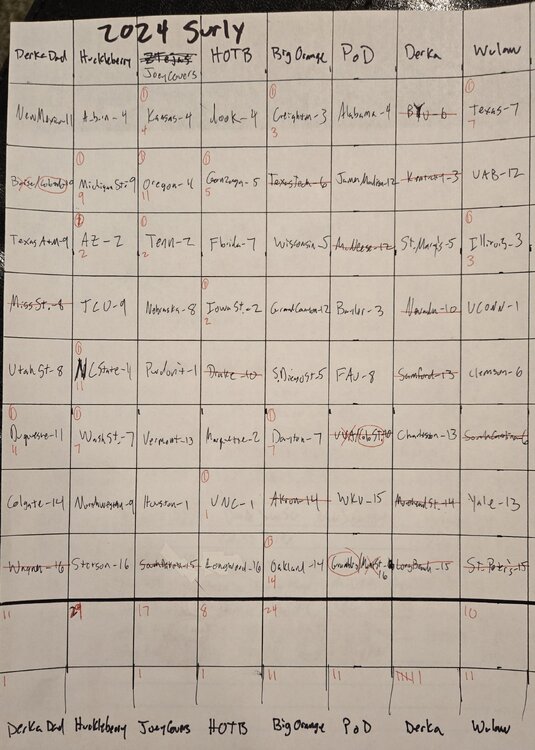 2024 Surly
Derka Dad Huckleberry JoeyCovers HOTB Big Orange PoD Derka Wulaw
New Mexico-11 Auburn-4 ① Kansas-4 4 Dook-4 ① Creighton-3 3 Alabama-4 BYU-6 ① Texas-7 7
Boise/Colorado-10 ① Michigan St.-9 9 ① Oregon-11 11 ① Gonzaga-5 5 Texas Tech-6 James Madison-12 Kentucky-3 UAB-12
Texas A+M-9 ① AZ-2 2 ① Tenn-2 2 Florida-7 Wisconsin-5 McNeese-12 St. Mary's-5 ① Illinois-3 3
Miss St.-8 TCU-9 Nebraska-8 ① Iowa St.-2 2 Grand Canyon-12 Baylor-3 Nevada-10 UConn-1
Utah St-8 ① NC State-11 11 Purdon't-1 Drake-10 S. Diego St.5 FAU-8 Samford-13 Clemson-6
① Duquesne-11 11 ① Wash St.-7 7 Vermont-13 Marquette-2 ① Dayton-7 7 UVA/Colo St.-10 Charleston-13 South Carolina-6
Colgate-14 Northwestern-9 Houston-1 ① UNC-1 1 Akron-14 WKU-15 Morehead St.-14 Yale-13
Wagner-16 Stetson-16 South Dakota-15 Longwood-16 ① Oakland-14 14 Grambling/Mont St.-16 Long Beach-15 St. Peter's-15
11 29 17 8 24 10
Derka Dad Huckleberry JoeyCovers HOTB Big Orange PoD Derka Wulaw